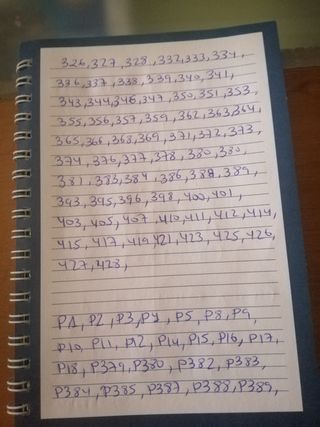 326,327,328,332,333,334,
336,337,338,339,340,341,
343,344,346,347,350,351,353,
355,356,357,359,362,363,364,
365,366,368,369,371,372,373,
374,376,377,378,380,380,
381,383,384,386,387,389,
393,395,396,398,400,401,
403,405,407,410,411,412,414,
415,417,419,421,423,425,426,
427,428,
P1,P2,P3,P4,P5,P8,P9,
P10,P11,P12,P14,P15,P16,P17,
P18,P379,P380,P382,P383,
P384,P385,P387,P388,P389,